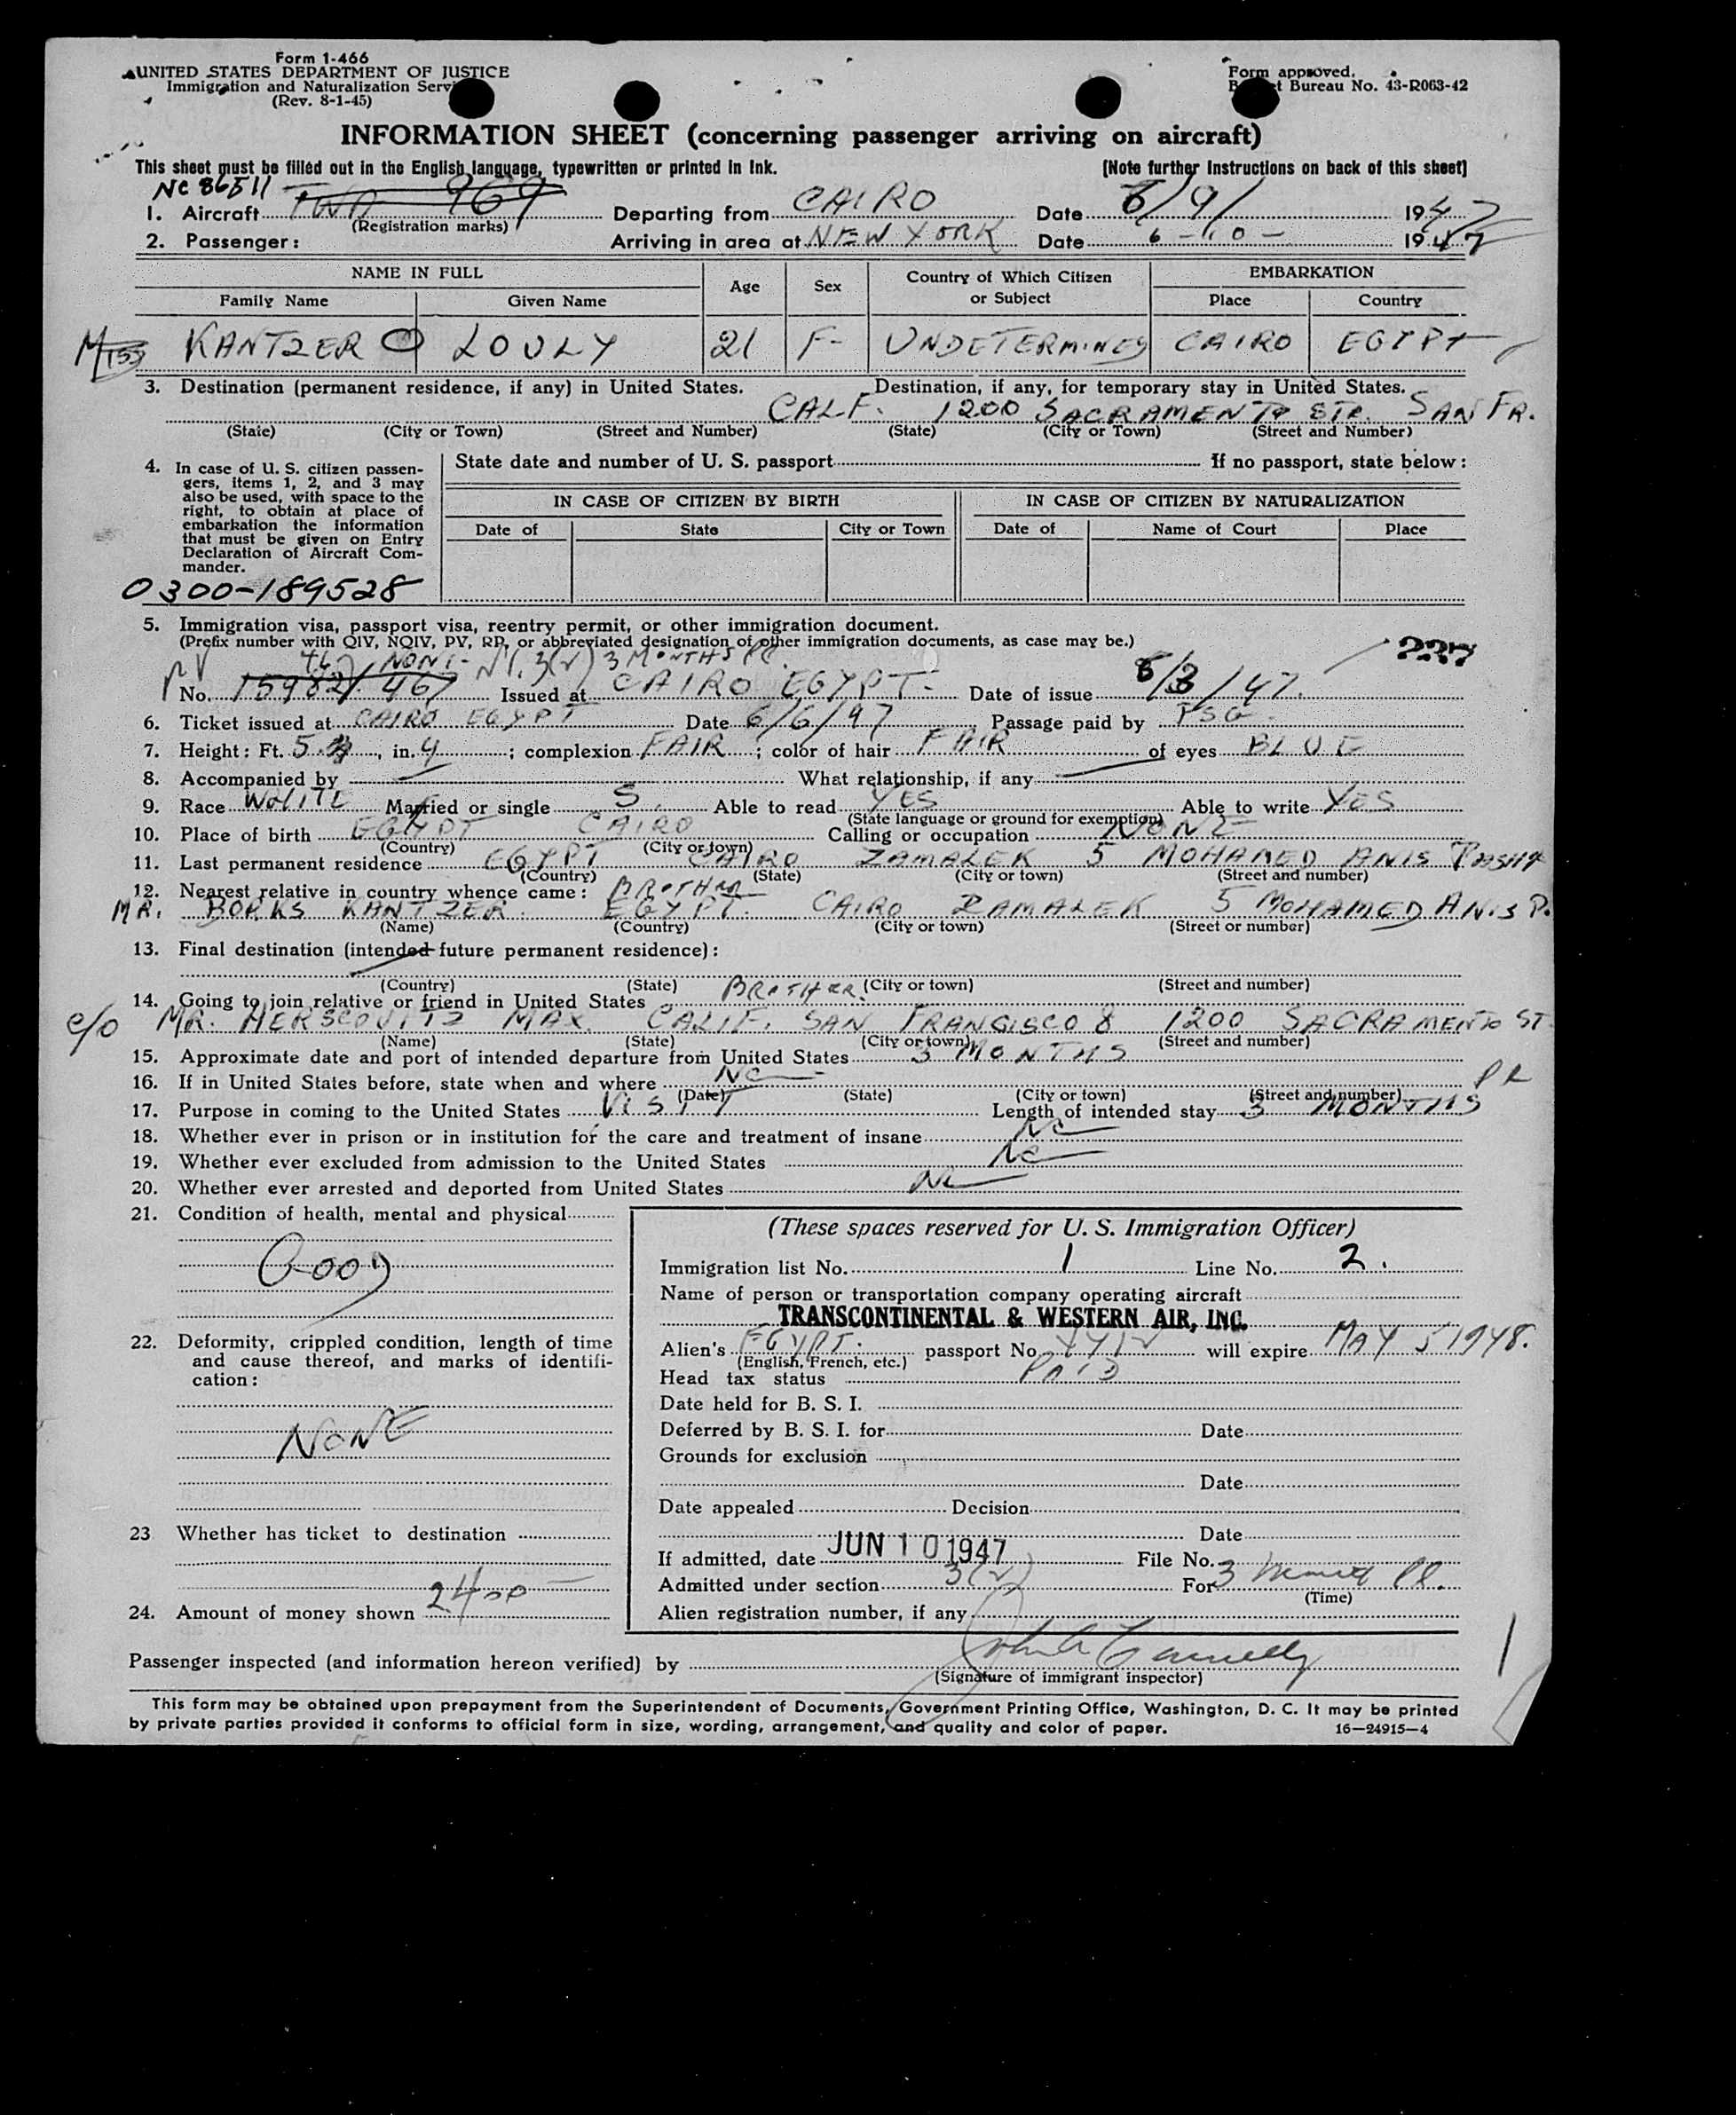 Form 1-466
UNITED STATES DEPARTMENT OF JUSTICE
Immigration and Naturalization Serv
(Rev. 8-1-45)
Form approved.
Bureau No. 43-R063-42
INFORMATION SHEET (concerning passenger arriving on aircraft)
This sheet must be filled out in the English language, typewritten or printed in ink. [Note further Instructions on back of this sheet]
NC 86511
1. Aircraft TWA 969 Departing from CAIRO Date 6/9/ 1947
(Registration marks)
2. Passenger: Arriving in area at NEW YORK Date 6-10- 1947
NAME IN FULL Age Sex Country of Which Citizen or Subject EMBARKATION
Family Name Given Name Place Country
KANTZER LOULY 21 F- UNDETERMINED CAIRO EGYPT
3. Destination (permanent residence, if any) in United States. Destination, if any, for temporary stay in United States.
CALF. 1200 SACRAMENTO STR. SAN FR.
(State) (City or Town) (Street and Number) (State) (City or Town) (Street and Number)
4. In case of U. S. citizen passengers, items 1, 2, and 3 may also be used, with space to the right, to obtain at place of embarkation the information that must be given on Entry Declaration of Aircraft Commander.
State date and number of U. S. passport If no passport, state below:
IN CASE OF CITIZEN BY BIRTH IN CASE OF CITIZEN BY NATURALIZATION
Date of State City or Town Date of Name of Court Place
0300-189528
5. Immigration visa, passport visa, reentry permit, or other immigration document.
(Prefix number with QIV, NQIV, PV, RP, or abbreviated designation of other immigration documents, as case may be.)
PV 3(2) 3 MONTHS 237
No. Issued at CAIRO EGYPT- Date of issue /47.
6. Ticket issued at CAIRO EGYPT Date 6/6/47 Passage paid by PSG.
7. Height: Ft. 5, in. 4; complexion FAIR; color of hair FAIR of eyes BLUE
8. Accompanied by What relationship, if any
9. Race WHITE Married or single S. Able to read YES Able to write YES
(State language or ground for exemption)
10. Place of birth EGYPT CAIRO Calling or occupation NONE
(Country) (City or town)
11. Last permanent residence EGYPT CAIRO ZAMALEK 5 MOHAMED ANIS PASHA
(Country) (State) (City or town) (Street and number)
12. Nearest relative in country whence came: BROTHER
MR. BORKS KANTZER EGYPT. CAIRO ZAMALEK 5 MOHAMED ANIS P.
(Name) (Country) (City or town) (Street or number)
13. Final destination (intended future permanent residence):
(Country) (State) (City or town) (Street and number)
14. Going to join relative or friend in United States BROTHER.
c/o MR. HERSCOVITZ MAX. CALIF. SAN FRANCISCO 8 1200 SACRAMENTO ST
(Name) (State) (City or town) (Street and number)
15. Approximate date and port of intended departure from United States 3 MONTHS
16. If in United States before, state when and where NO
(Date) (State) (City or town) (Street and number)
17. Purpose in coming to the United States VISIT Length of intended stay 3 MONTHS
18. Whether ever in prison or in institution for the care and treatment of insane NO
19. Whether ever excluded from admission to the United States NO
20. Whether ever arrested and deported from United States NO
21. Condition of health, mental and physical
GOOD
22. Deformity, crippled condition, length of time and cause thereof, and marks of identification:
NONE
23 Whether has ticket to destination
24. Amount of money shown 2400
(These spaces reserved for U. S. Immigration Officer)
Immigration list No. 1 Line No. 2.
Name of person or transportation company operating aircraft
TRANSCONTINENTAL & WESTERN AIR, INC.
Alien's EGYPT. passport No. will expire MAY 5 1948.
(English, French, etc.)
Head tax status PAID
Date held for B. S. I.
Deferred by B. S. I. for Date
Grounds for exclusion
Date
Date appealed Decision
Date
If admitted, date JUN 10 1947 File No.
Admitted under section 3(2) For 3
(Time)
Alien registration number, if any
Passenger inspected (and information hereon verified) by
(Signature of immigrant inspector)
This form may be obtained upon prepayment from the Superintendent of Documents, Government Printing Office, Washington, D. C. It may be printed
by private parties provided it conforms to official form in size, wording, arrangement, and quality and color of paper. 16—24915-4